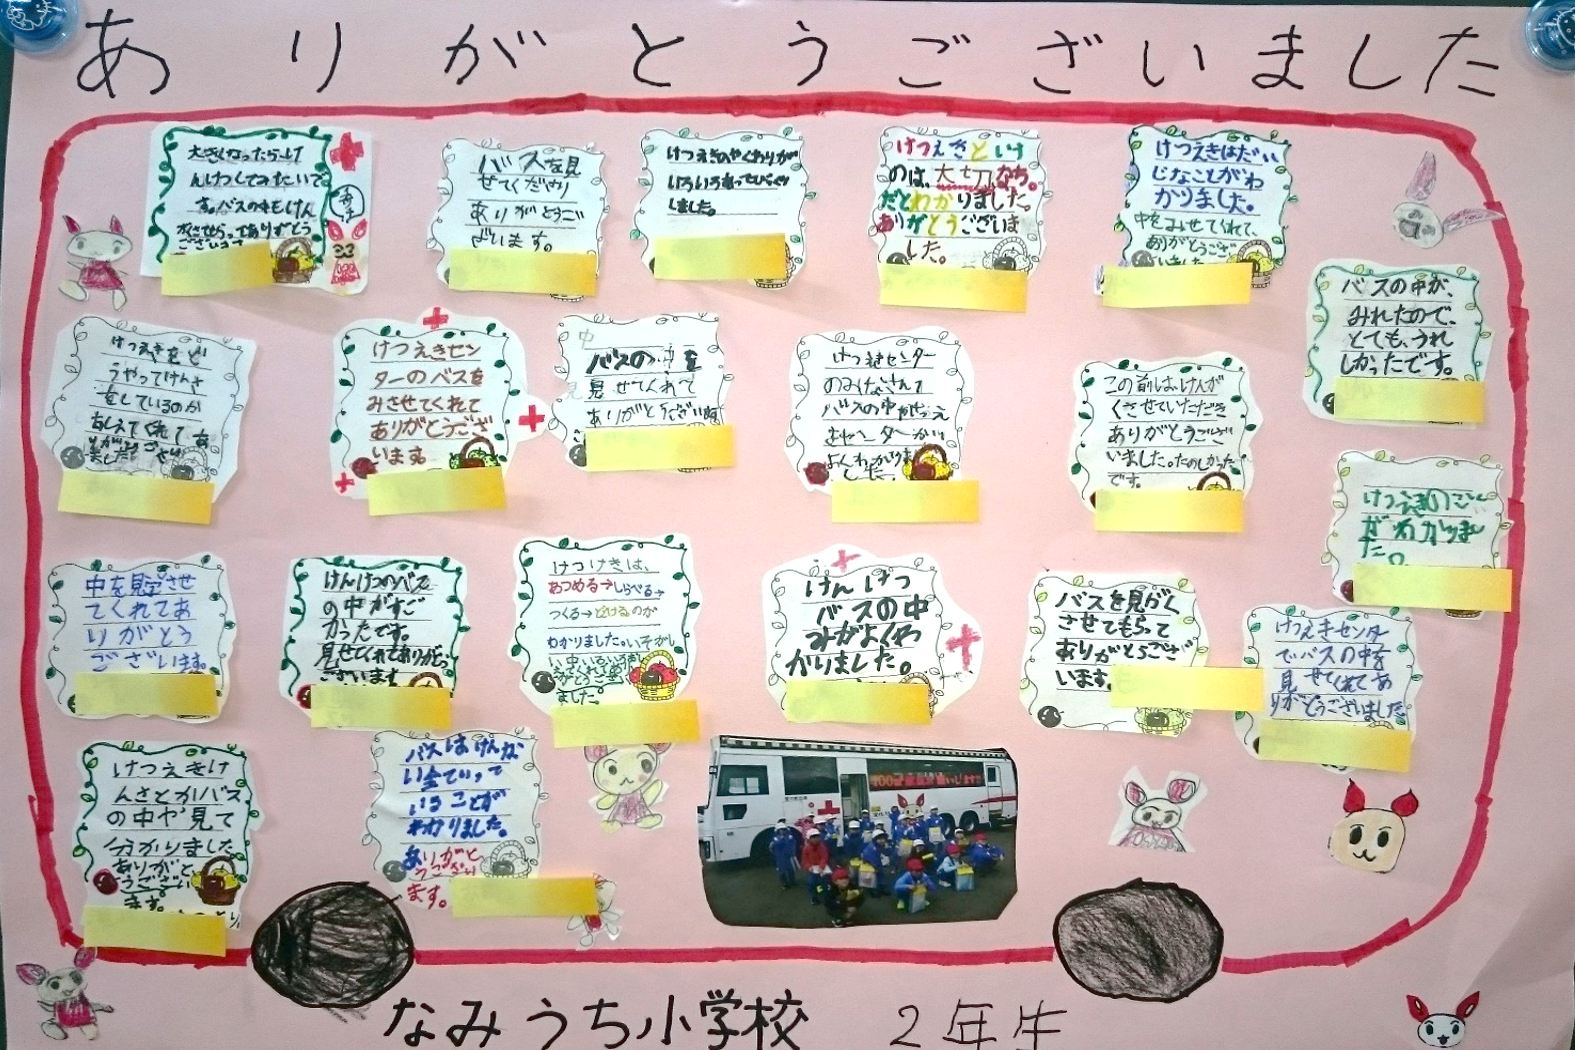 ありがとうございました
大きくなったらけ
んけつしてみたいで
す。バスの中もけん
がくさせてもらってありがとう
ございます
バスを見
せてくださり
ありがとうご
ざいます。
けつえきのやくわりが
いろいろあってびっくり
しました。
けつえきといけ
のは、大切なち。
だとわかりました。
ありがとうございま
した。
けつえきはだい
じなことがわ
かりました。
中をみせてくれて、
ありがとうござ
いました
バスの中が、
みれたので、
とても、うれ
しかったです。
けつえきをど
うやってけんさ
をしているのか
おしえてくれてあ
けつえきセン
ターのバスを
みさせてくれて
ありがとうござ
います
バスの中を
見せてくれて
ありがとうございま
けつえきセンター
のみなさんへ
バスの中
この前は、けんが
くさせていただき
ありがとうござ
いました。たのしかった
です。
けつえきのこと
がわかりまし
た。
中を見学させ
てくれてあ
りがとう
ございます。
けんけつのバス
の中がすご
かったです。
見せてくれてありがとう
ございます
けつけきは、
あつめる→しらべる→
つくる→とどけるのが
わかりました。いそがし
い中いろいろ
ありがとうござい
ました。
けんけつ
バスの中
みがよくわ
かりました。
バスを見がく
させてもらって
ありがとうござ
います。
けつえきセンタ
でバスの中を
見せてくれてあ
りがとうございました
けつえきけ
んさとかバス
の中や見て
分かりました
ありがと
うござい
ます。
バスはけんな
い全ていって
いることが
わかりました。
ありがと
うござい
ます。
400
なみうち小学校 2年生